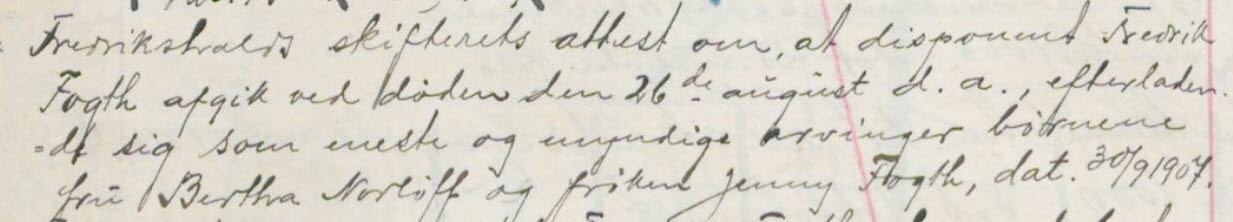 Fredrikshalds skifterets attest om, at disponent Fredrik
Fogth afgik ved døden den 26de august d. a., efterladen-
=de sig som eneste og umyndige arvinger børnene
fru Bertha Norløff og frøken Jenny Fogth, dat. 30/9 1907.